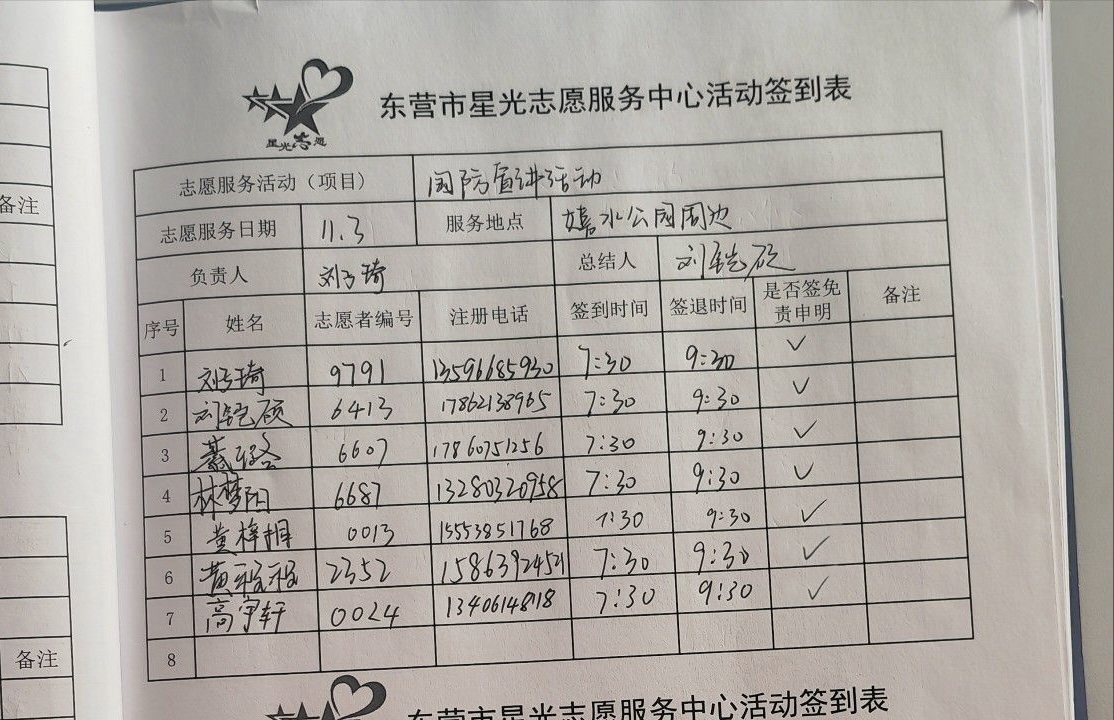 备注
备注
星光志愿
东营市星光志愿服务中心活动签到表
志愿服务活动（项目） 国防宣讲活动
志愿服务日期 11.3 服务地点 嬉水公园周边
负责人 刘子琦 总结人 刘铠硕
序号 姓名 志愿者编号 注册电话 签到时间 签退时间 是否签免责申明 备注
1 刘子琦 9791 13596685930 7:30 9:30 ✓
2 刘铠硕 6413 17862138965 7:30 9:30 ✓
3 6607 17860751256 7:30 9:30 ✓
4 林梦阳 6687 13280320958 7:30 9:30 ✓
5 黄梓桐 0013 15553851768 7:30 9:30 ✓
6 黄 2352 15863924521 7:30 9:30 ✓
7 高宇轩 0024 13406148118 7:30 9:30 ✓
8
东营市星光志愿服务中心活动签到表